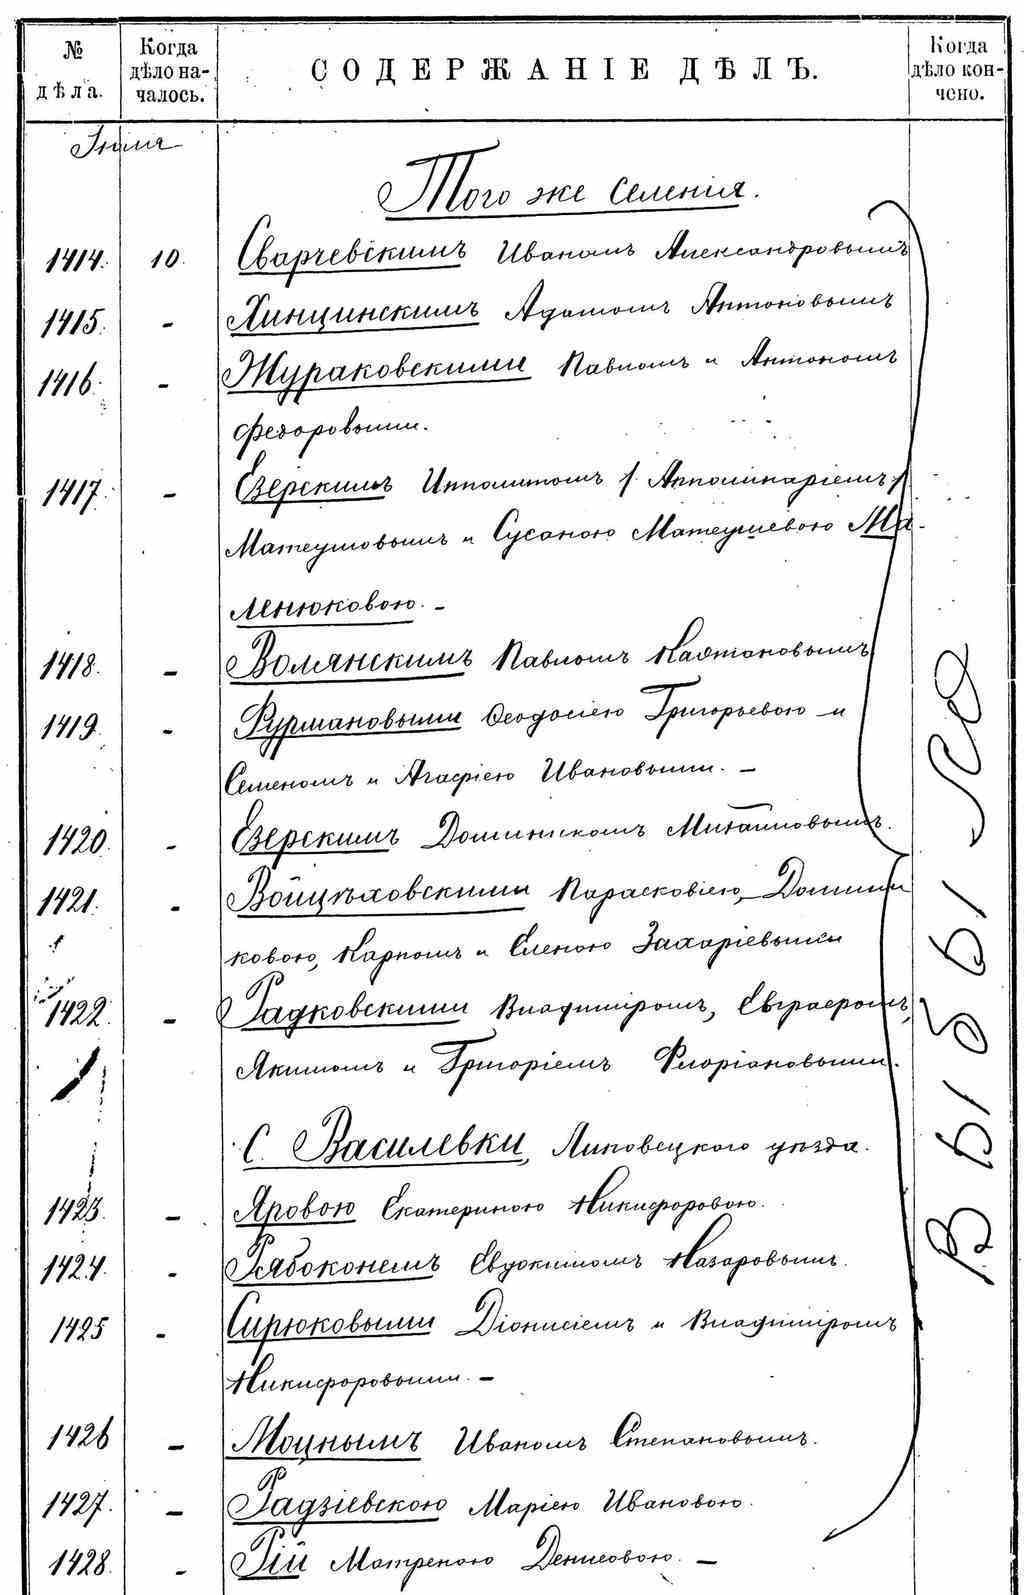 № дѣла. Когда дѣло началось. СОДЕРЖАНІЕ ДѢЛЪ. Когда дѣло кончено.
Того же селенія.
1414. 10. Сварчевскимъ Иваномъ Александровымъ
1415. - Хинцинскимъ Адамомъ Антоновымъ
1416. - Жураковскими Павломъ и Антономъ
Федоровыми.
1417. - Езерскимъ Ипполитомъ / Апполинаріемъ /
Матеушовымъ и Сусаною Матеушевою Ма-
ленюковою. -
1418. - Волянскимъ Павломъ Каэтановымъ
1419. - Фурмановыми Ѳеодосіею Григорьевою и
Семеномъ и Агафіею Ивановыми. -
1420. - Езерскимъ Доминикомъ Михайловымъ.
1421. - Войцѣховскими Парасковіею Домини
ковою, Карпомъ и Еленою Захаріевыми
1422. - Радковскими Владиміромъ, Евграфомъ,
Якимомъ и Григоріемъ Флоріановыми.
С. Василевки, Липовецкого уѣзда.
1423. - Яровою Екатериною Никифоровою.
1424. - Рябоконемъ Евдокимомъ Назаровымъ.
1425 - Сирюковыми Діонисіемъ и Владиміромъ
Никифоровыми. -
1426 - Моцнымъ Иваномъ Степановымъ.
1427. - Радзіевскою Маріею Ивановою.
1428. - Рій Матреною Денисовою. -